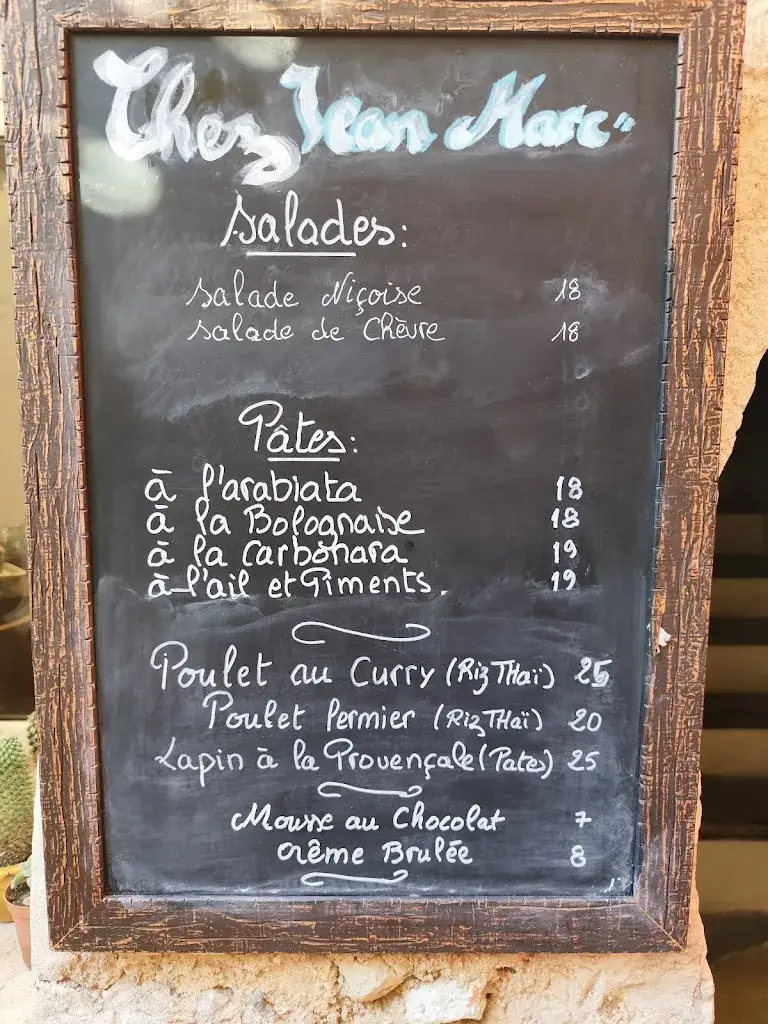 Chez Jean Marc
Salades:
Salade Niçoise 18
Salade de Chèvre 18
Pâtes:
à l'arabiata 18
à la Bolognaise 18
à la Carbonara 19
à l'ail et Piments. 19
Poulet au Curry (Riz THaï) 25
Poulet Fermier (Riz THaï) 20
Lapin à la Provençale (Pates) 25
Mousse au Chocolat 7
Crême Brulée 8